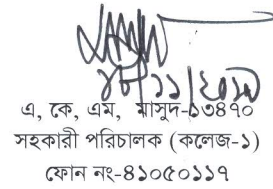 ১৮/১১/২০১৮
এ, কে, এম, মাসুদ-১৩৪৭০
সহকারী পরিচালক (কলেজ-১)
ফোন নং-৪১০৫০১১৭